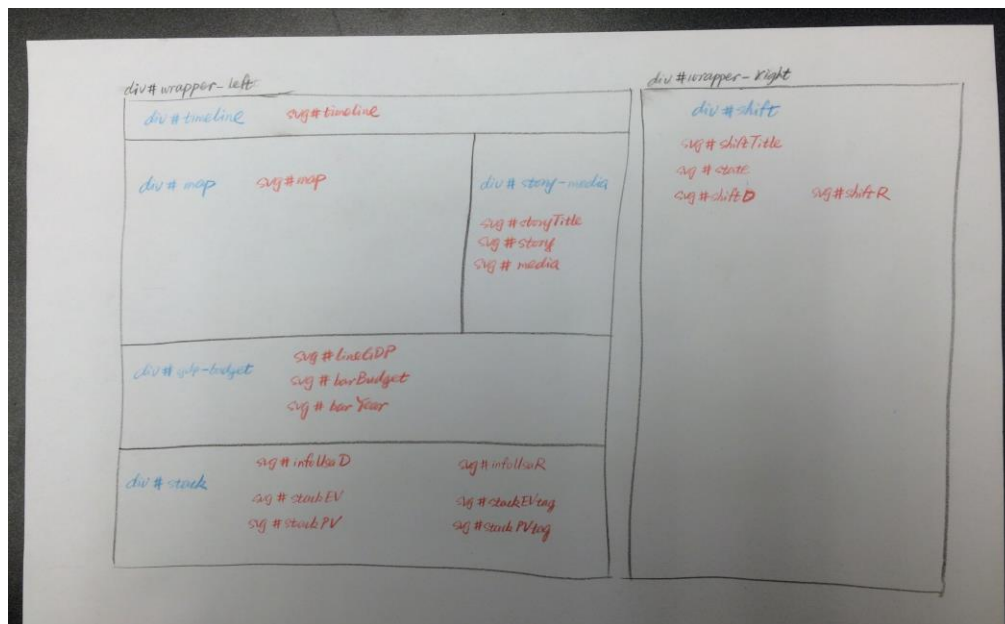 div#wrapper-left
div#timeline svg#timeline
div#map svg#map
div#story-media
svg#storyTitle
svg#story
svg#media
div#gdp-budget
svg#lineGDP
svg#barBudget
svg#barYear
div#stack
svg#infoUsaD svg#infoUsaR
svg#stackEV svg#stackEVtag
svg#stackPV svg#stackPVtag
div#wrapper-right
div#shift
svg#shiftTitle
svg#state
svg#shiftD svg#shiftR